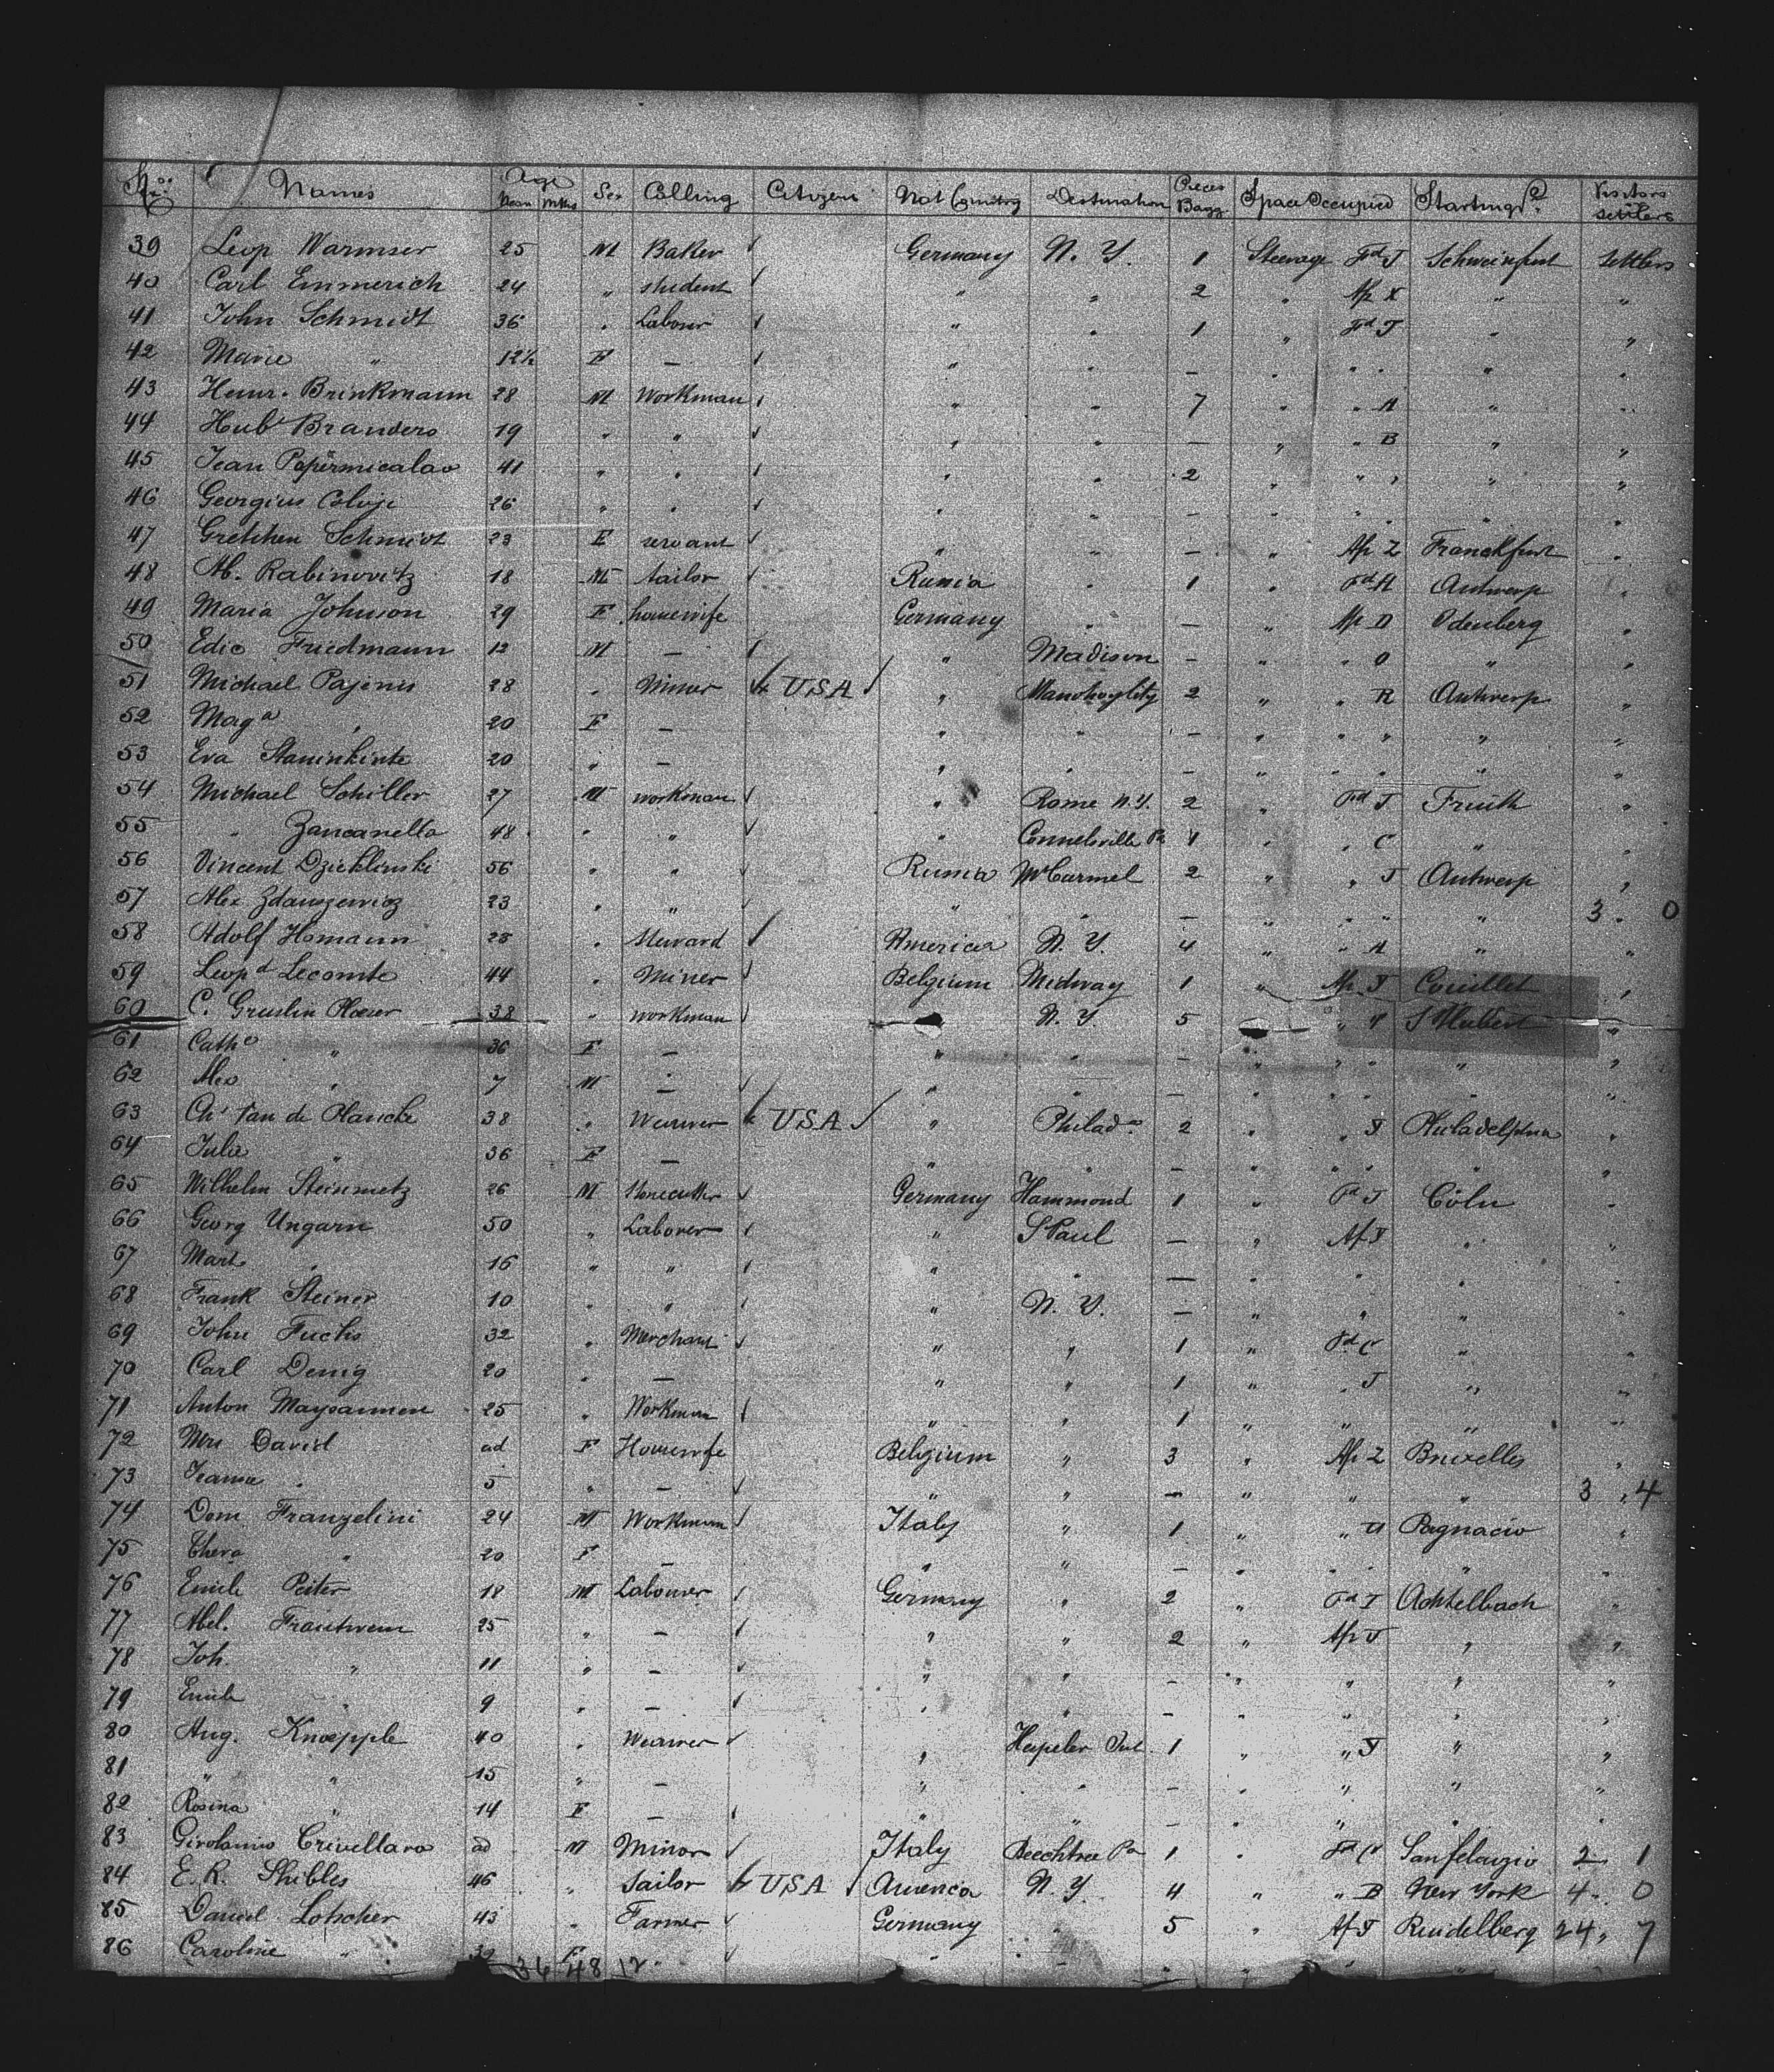 No. Names Age Years Mths Sex Calling Citizen Nat Country Destination Pieces Bagg. Space Occupied Starting P. Visitors settlers
39 Leop Warmser 25 M Baker Germany N. Y. 1 Steerage Fd J Schweinfurt settlers
40 Carl Emmerich 24 " student " " 2 " Af X " "
41 John Schmidt 36 " Labour " " 1 " Fd J " "
42 Marie " 12½ F — " " — " " " " "
43 Henr. Brinkmann 28 M Workman " " 7 " " A " "
44 Hub Branders 19 " " " " — " " B " "
45 Jean 41 " " " " 2 " " " " "
46 Georgius 26 " " " " — " " " " "
47 Gretchen Schmidt 23 F servant " " — " Af Z Franckfurt "
48 Ab. Rabinovitz 18 M tailor Russia " 1 " Fd A Antwerp "
49 Maria Johnson 29 F housewife Germany " — " Af D Odenberg "
50 Edie Friedmann 12 M — " Madison — " " O " "
51 Michael Pajenis 28 " Minor USA " 2 " " R Antwerp "
52 Maga " 20 F — " " — " " " " "
53 Eva 20 " — " " — " " " " "
54 Michael Schiller 27 M workman " Rome N.Y. 2 " Fd J Fruth "
55 " Zancanella 48 " " " Connelsville Pa 1 " " C " "
56 Vincent Dzieklinski 56 " " Russia Mt Carmel 2 " " J Antwerp "
57 Alex Zdanszewicz 23 " " " " — " " " " 3 " 0
58 Adolf Homann 25 " Steward America N. Y. 4 " " A " "
59 Leopd Lecomte 44 " Miner Belgium Midway 1 " Af J Couillet "
60 C. Gruslin 38 " workman " N. Y. 5 " " " S Hubert "
61 Cathe " 36 F — " " — " " " " "
62 Alex " 7 M — " " — " " " " "
63 Chs Van de Plancke 38 " Weawer USA " Philada. 2 " " J Philadelphia "
64 Julie " 36 F — " " — " " " " "
65 Wilhelm Steinmetz 26 M Stonecutter Germany Hammond 1 " Fd J Cöln "
66 Georg Ungarn 50 " Laborer " S Paul — " Af J " "
67 Mart. " 16 " " " " — " " " "
68 Frank Steiner 10 " " " N. Y. — " " " "
69 John Fuchs 32 " Merchant " " 1 " Fd C " "
70 Carl Denig 20 " — " " 1 " " J " "
71 Anton 25 " Workman " " 1 " " " "
72 Mrs David ad F Housewife Belgium " 3 " Af Z Bruxelles "
73 Jeanne " 5 " — " " — " " " 3 " 4
74 Dom Franzelini 24 M Workman Italy " 1 " " U Pagnacio "
75 " 20 F — " " — " " " "
76 Emile Peiter 18 M Labourer Germany " 2 " Fd J Achtelbach "
77 Abel. Frantwein 25 " — " " 2 " Af J " "
78 Joh. " 11 " — " " — " " " "
79 Emile " 9 " — " " — " " " "
80 Aug. Knoepple 40 " Weawer " Hespeler Ont. 1 " " J " "
81 " " 15 " — " " — " " " "
82 Rosina " 14 F — " " — " " " "
83 Girolamo Crivellaro ad M Minor Italy Beechtree Pa 1 " Fd C Sanfelazio 2 " 1
84 E. R. Shibles 46 " Sailor USA America N. Y. 4 " " B New York 4 " 0
85 Daniel Lotscher 43 " Farmer Germany " 5 " Af J Reudelberg 24 " 7
86 Caroline " 32 F " " — " " "
36 48 12